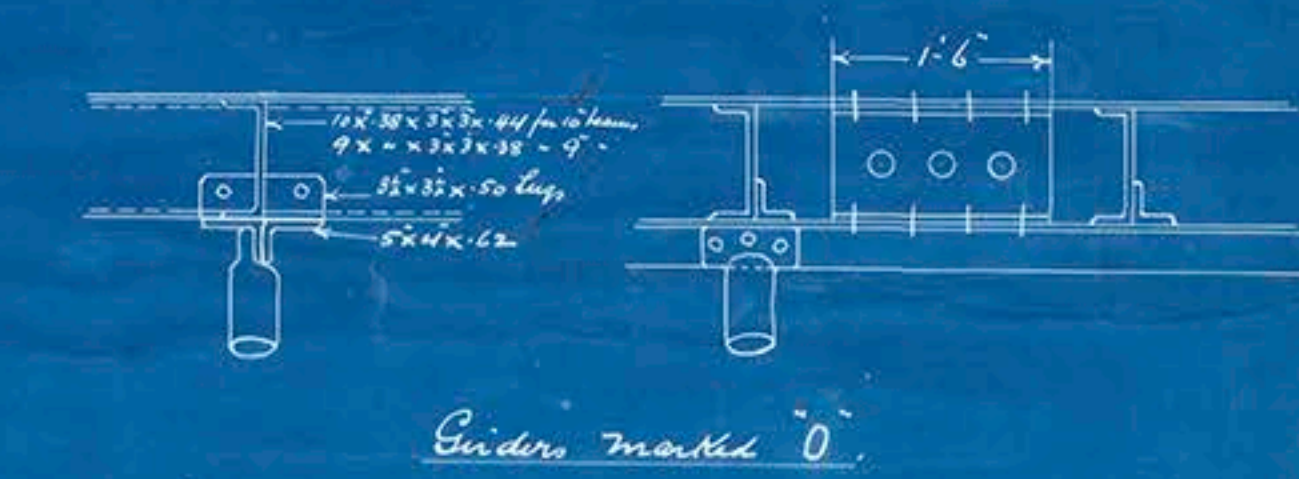 1'-6"
10"x .38 x 3"x 3"x .44 for 10" beams
9 x " x 3"x 3"x .38 " 9" "
3½"x 3½"x .50 Lugs
5"x 4"x .62
Girders marked "O".